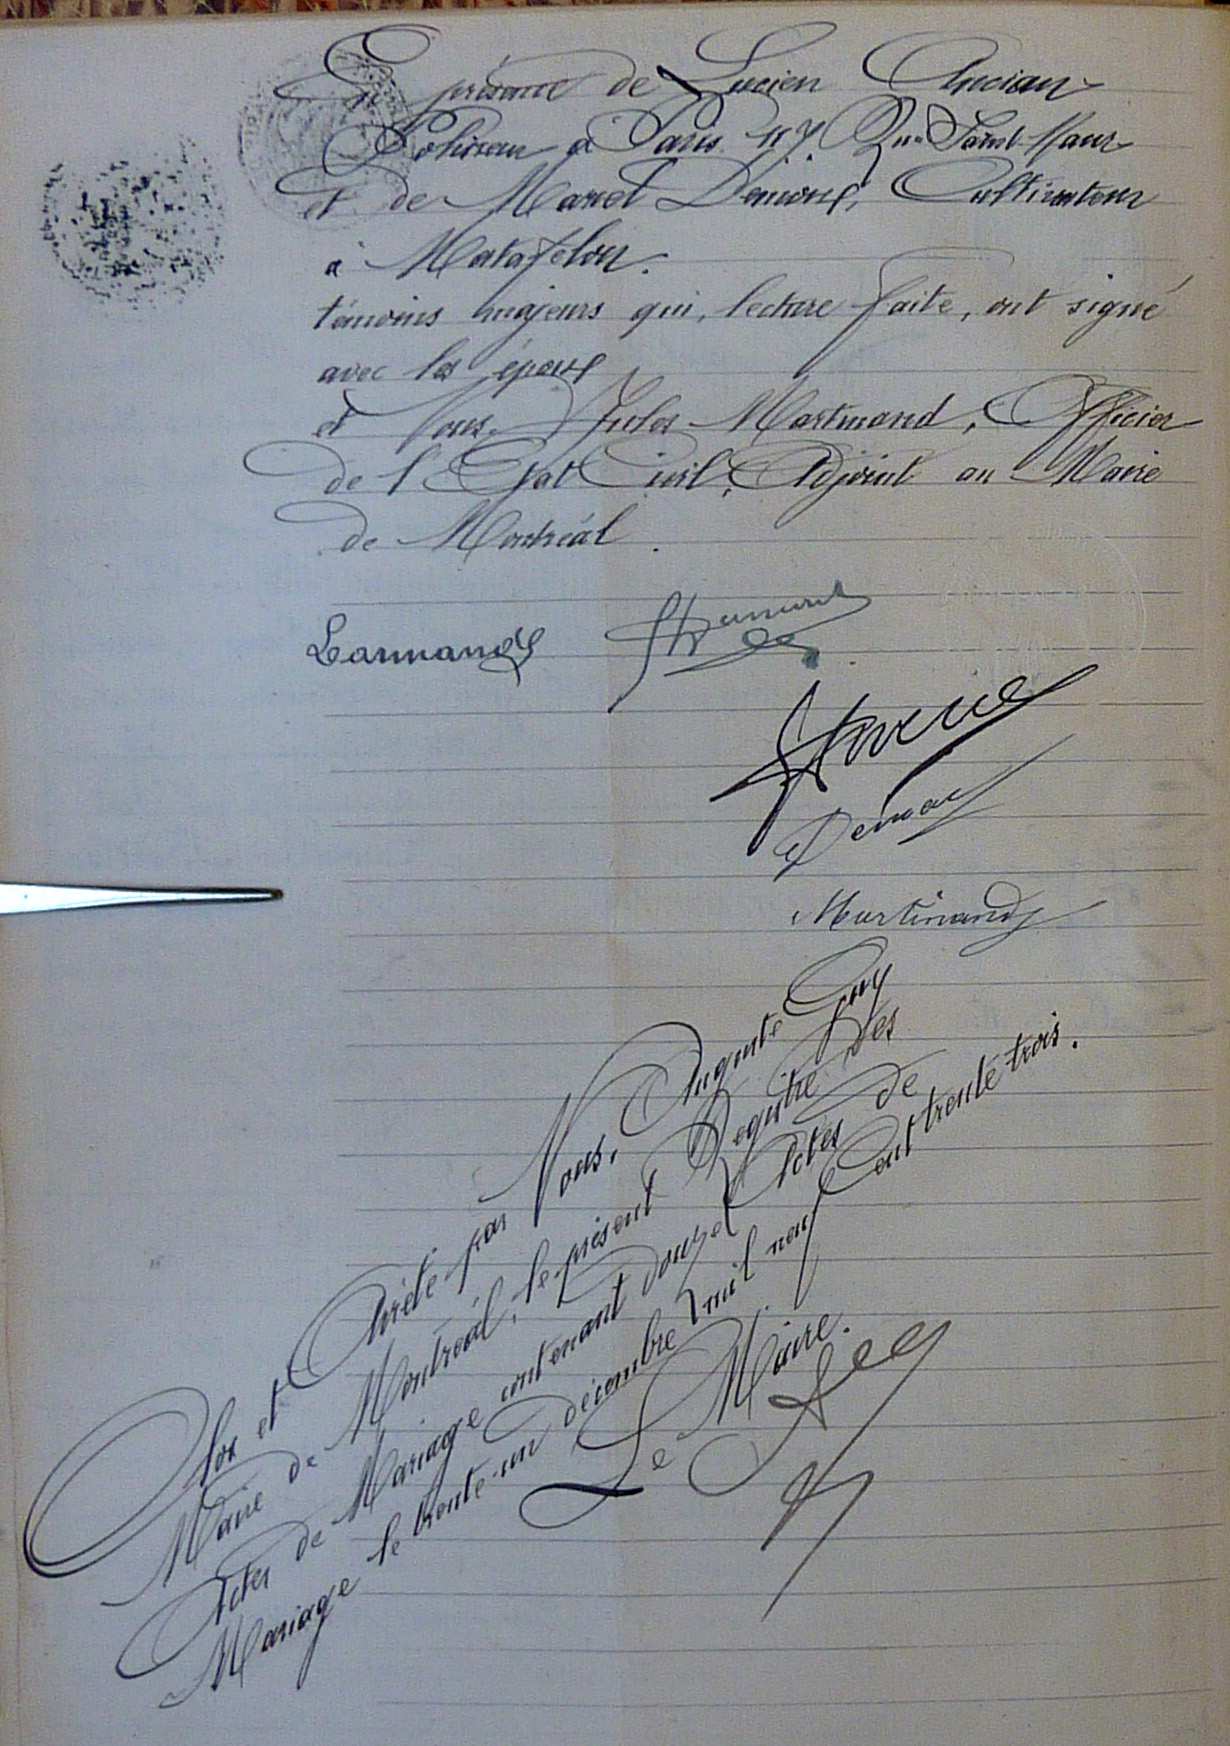 En présence de Lucien Ancian
Polisseur à Paris 117 Rue Saint Maur
et de Marcel Demoux, Cultivateur
à Matafelon.
témoins majeurs qui, lecture faite, ont signé
avec les époux
et Nous, Jules Martinand, Officier
de l'Etat Civil, Adjoint au Maire
de Montréal.
Martinand
Clos et Arrêté par Nous, Auguste Guy
Maire de Montréal, le présent Registre des
Actes de Mariage contenant douze Actes de
Mariage le trente-un décembre mil neuf Cent trente trois.
Le Maire.